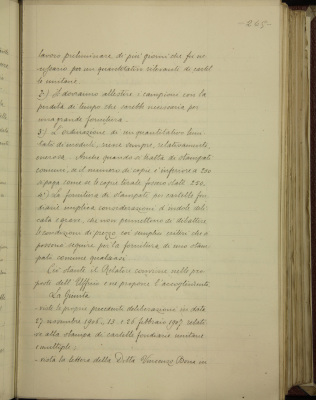 -265-
lavoro preliminare di più giorni che fu ne-
cessario per un quantitativo rilevante di cartel-
le unitarie.
2°) Si dovranno allestire i campioni con la
perdita di tempo che sarebbe necessaria per
una grande fornitura.
3°) L'ordinazione di un quantitativo limi-
tato di moduli, riesce sempre, relativamente,
onerosa. Anche quando si tratta di stampati
comuni, se il numero di copie è inferiore a 250
si paga come se le copie tirate fossero state 250.
4°) La fornitura di stampati per cartelle fon-
diarie implica considerazioni d'indole deli-
cata e grave, che non permettono di dibattere
le condizioni di prezzo coi semplici criteri che si
possono seguire per la fornitura di uno stam-
pato comune qualsiasi.
Ciò stante il Relatore conviene nelle pro-
poste dell'Ufficio e ne propone l'accoglimento.
La Giunta
viste le proprie precedenti deliberazioni in data
27 novembre 1906, 13 e 26 febbraio 1907 relati-
ve alla stampa di cartelle fondiarie unitarie
e multiple;
vista la lettera della Ditta Vincenzo Bona in